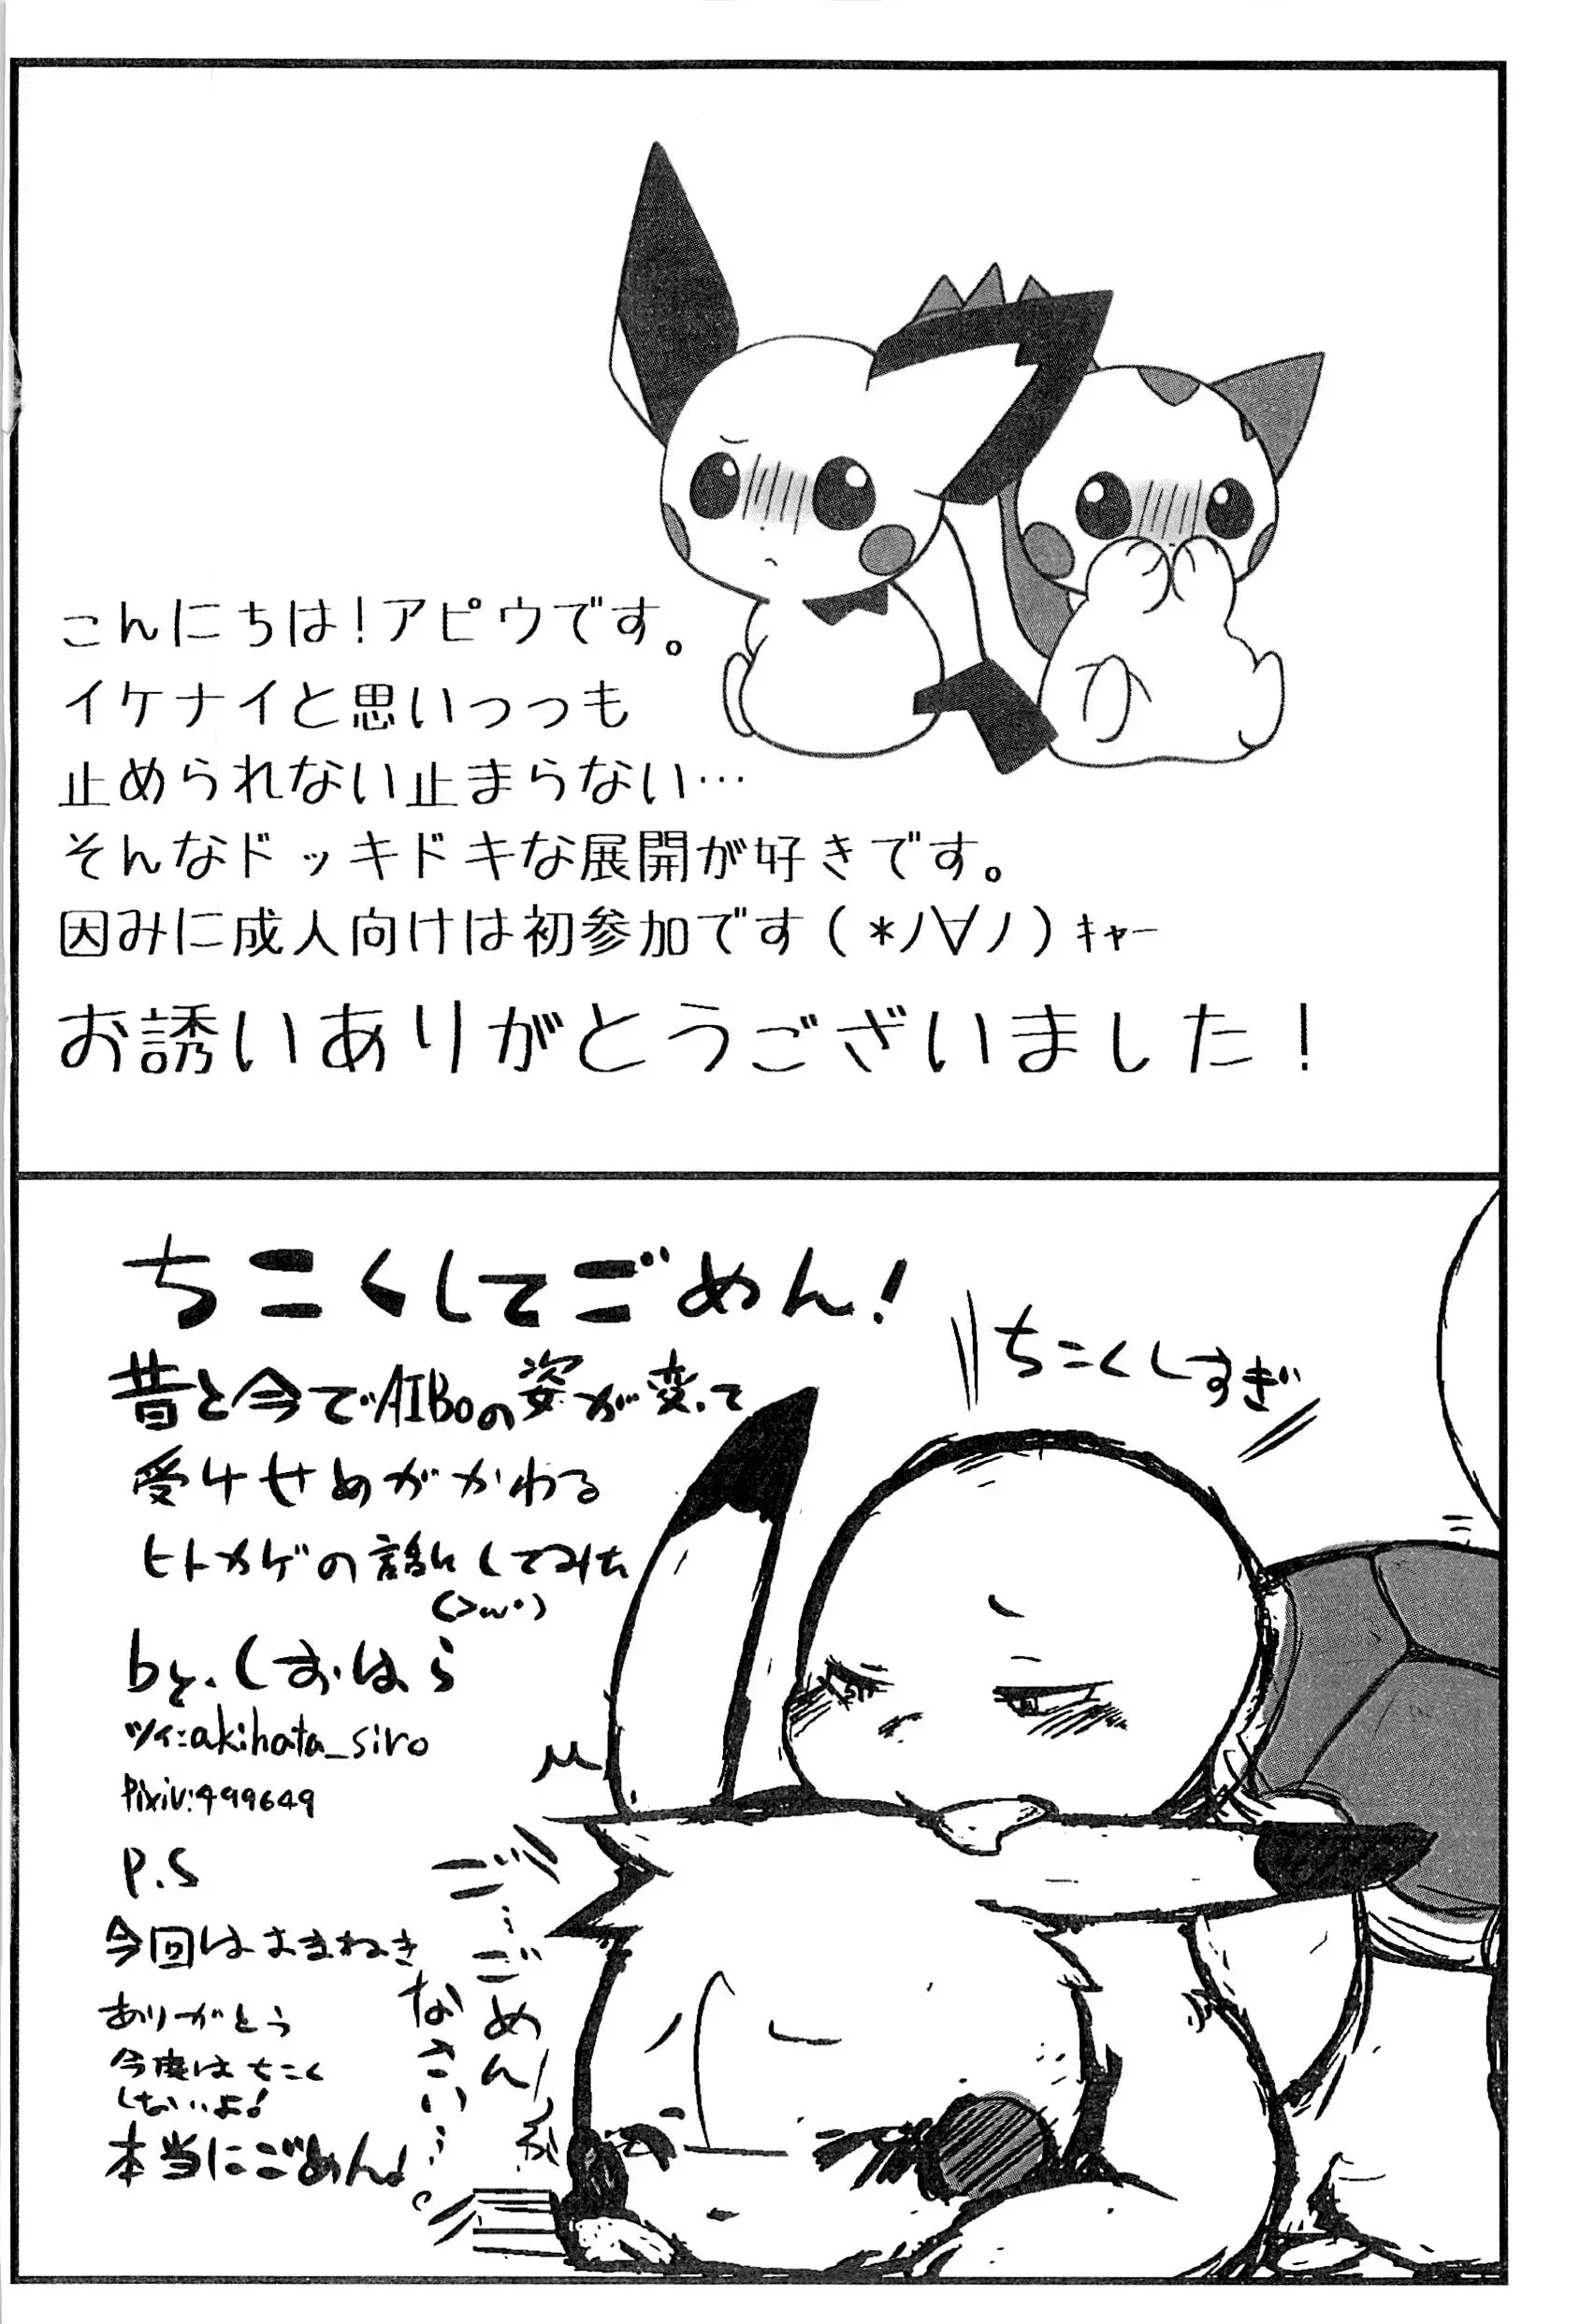 こんにちは!アピウです。
イケナイと思いっっも
止められない止まらない…
そんなドッキドキな展開が好きです。
因みに成人向けは初参加です(*ノ∀ノ)キャー
お誘いありがとうございました!
ちこくしてごめん!
昔と今でAIBoの姿が変って
受けせめがかわる
ヒトカゲの話にしてみた
(>w・)
by.しおはら
ツイ:akihata_siro
Pixiv:499649
P.S
今回はおまねき
ありがとう
今度はちこく
しないよ!
本当にごめん!
ちこくしすぎ
ご…ごめん
なさい…。